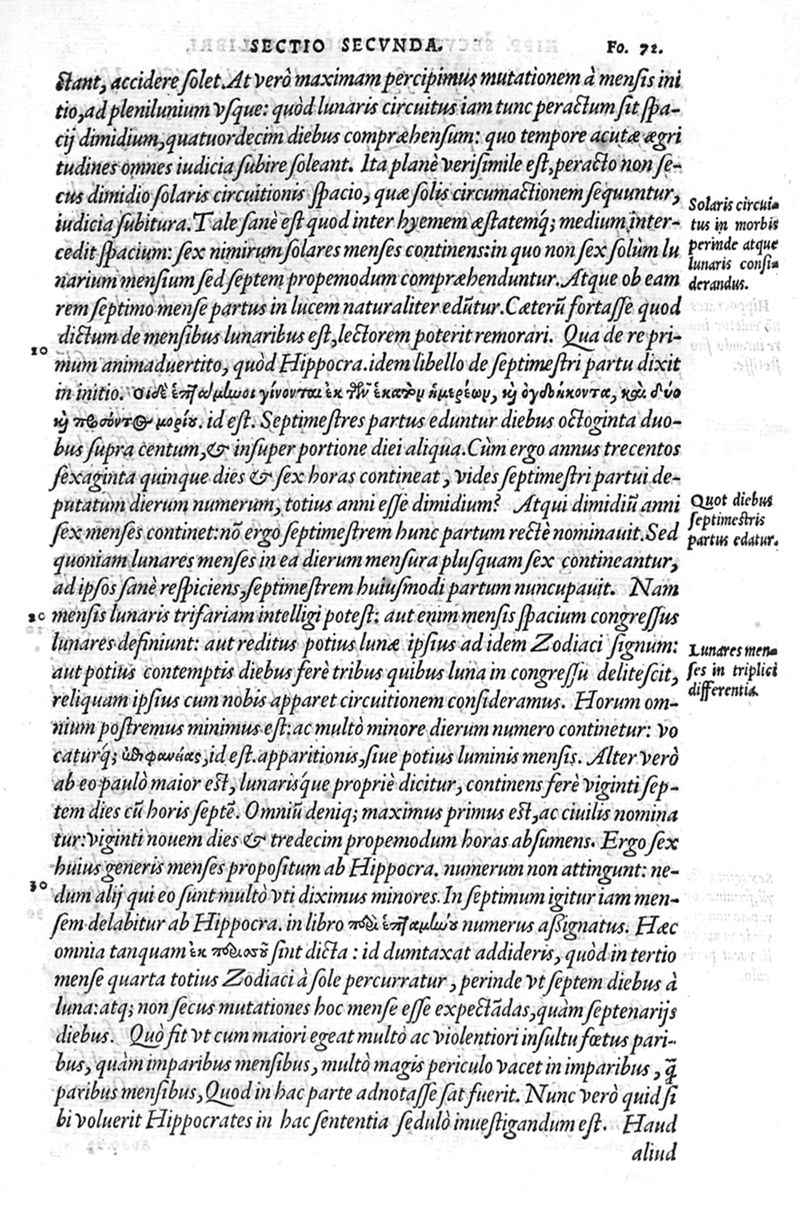 SECTIO SECVNDA. Fo. 72.
ctant, accidere solet. At verò maximam percipimus mutationem à mensis ini
tio, ad plenilunium vsque: quòd lunaris circuitus iam tunc peractum sit spa-
cij dimidium, quatuordecim diebus compræhensum: quo tempore acutæ ægri
tudines omnes iudicia subire soleant. Ita planè verisimile est, peracto non se-
cus dimidio solaris circuitionis spacio, quæ solis circumactionem sequuntur,
iudicia subitura. Tale sanè est quod inter hyemem æstatemq; medium inter-
cedit spacium: sex nimirum solares menses continens: in quo non sex solùm lu
narium mensium sed septem propemodum compræhenduntur. Atque ob eam
rem septimo mense partus in lucem naturaliter edūtur. Cæterū fortasse quod
dictum de mensibus lunaribus est, lectorem poterit remorari. Qua de re pri-
10
mum animaduertito, quòd Hippocra. idem libello de septimestri partu dixit
in initio. οιδὲ ἑπτάμηνοι γίνονται ἐκ τῶν ἑκατὸν ἡμερέων, καὶ ὀγδήκοντα, καὶ δύο
καὶ προσόντος μορίου. id est. Septimestres partus eduntur diebus octoginta duo-
bus supra centum, & insuper portione diei aliqua. Cùm ergo annus trecentos
sexaginta quinque dies & sex horas contineat, vides septimestri partui de-
putatum dierum numerum, totius anni esse dimidium? Atqui dimidiū anni
sex menses continet: nō ergo septimestrem hunc partum rectè nominauit. Sed
quoniam lunares menses in ea dierum mensura plusquam sex contineantur,
ad ipsos sanè respiciens, septimestrem huiusmodi partum nuncupauit. Nam
20 mensis lunaris trifariam intelligi potest: aut enim mensis spacium congressus
lunares definiunt: aut reditus potius lunæ ipsius ad idem Zodiaci signum:
aut potius contemptis diebus ferè tribus quibus luna in congressu delitescit,
reliquam ipsius cum nobis apparet circuitionem consideramus. Horum om-
nium postremus minimus est: ac multò minore dierum numero continetur: vo
caturq; ἐπιφανείας, id est. apparitionis, siue potius luminis mensis. Alter verò
ab eo paulò maior est, lunarisque propriè dicitur, continens ferè viginti sep-
tem dies cū horis septē. Omniū deniq; maximus primus est, ac ciuilis nomina
tur: viginti nouem dies & tredecim propemodum horas absumens. Ergo sex
huius generis menses propositum ab Hippocra. numerum non attingunt: ne-
30
dum alij qui eo sunt multò vti diximus minores. In septimum igitur iam men-
sem delabitur ab Hippocra. in libro περὶ ἑπταμήνου numerus assignatus. Hæc
omnia tanquam ἐκ περιόδου sint dicta: id dumtaxat addideris, quòd in tertio
mense quarta totius Zodiaci à sole percurratur, perinde vt septem diebus à
luna: atq; non secus mutationes hoc mense esse expectādas, quàm septenarijs
diebus. Quò fit vt cum maiori egeat multò ac violentiori insultu fœtus pari-
bus, quàm imparibus mensibus, multò magis periculo vacet in imparibus, q̄
paribus mensibus, Quod in hac parte adnotasse sat fuerit. Nunc verò quid si
bi voluerit Hippocrates in hac sententia sedulò inuestigandum est. Haud
aliud
Solaris circui-
tus in morbis
perinde atque
lunaris consi-
derandus.
Quot diebus
septimestris
partus edatur.
Lunares men-
ses in triplici
differentia.